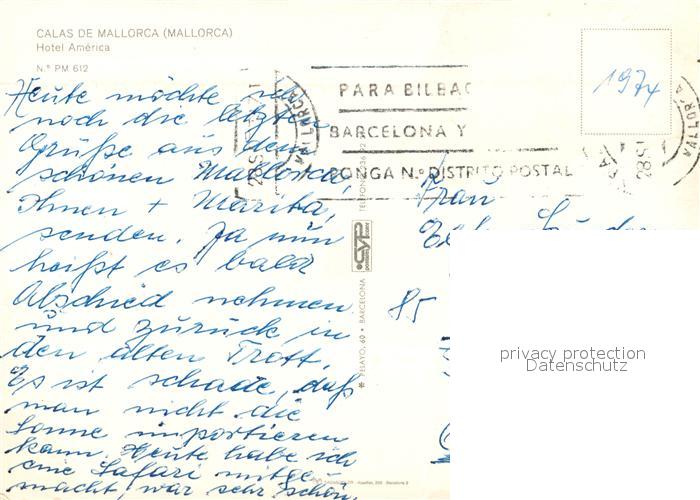 CALAS DE MALLORCA (MALLORCA)
Hotel América
N.º PM 612
Heute möchte ich
noch die letzten
Grüße aus dem
schönen Mallorca,
Ihnen + Marita,
senden. Ja nun
heißt es bald
Abschied nehmen
und zurück in
den alten Trott.
Es ist schade, daß
man nicht die
Sonne importieren
kann. Heute habe ich
eine Safari mitge-
macht, war sehr schön.
PARA BILBAO
BARCELONA Y
PONGA N.º DISTRITO POSTAL
MALLORCA
28 S
1974
28 S
MALLORCA
Frau
85
CYP
PELAYO, 60 • BARCELONA
TELEFONO
privacy protection
Datenschutz